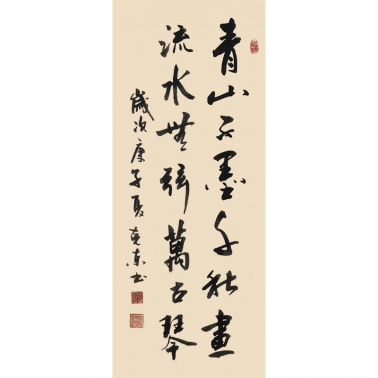 青山不墨千秋畫
流水無弦萬古琴
歲次庚子夏克東书